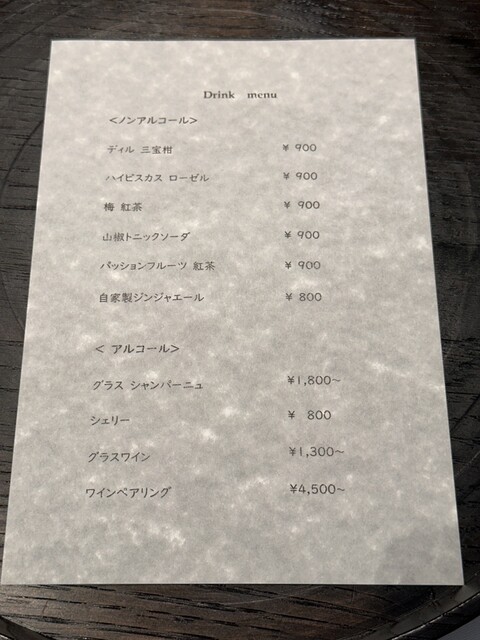 Drink menu
＜ノンアルコール＞
ディル 三宝柑 ￥ 900
ハイビスカス ローゼル ￥ 900
梅 紅茶 ￥ 900
山椒トニックソーダ ￥ 900
パッションフルーツ 紅茶 ￥ 900
自家製ジンジャエール ￥ 800
＜ アルコール＞
グラス シャンパーニュ ￥1,800～
シェリー ￥ 800
グラスワイン ￥1,300～
ワインペアリング ￥4,500～